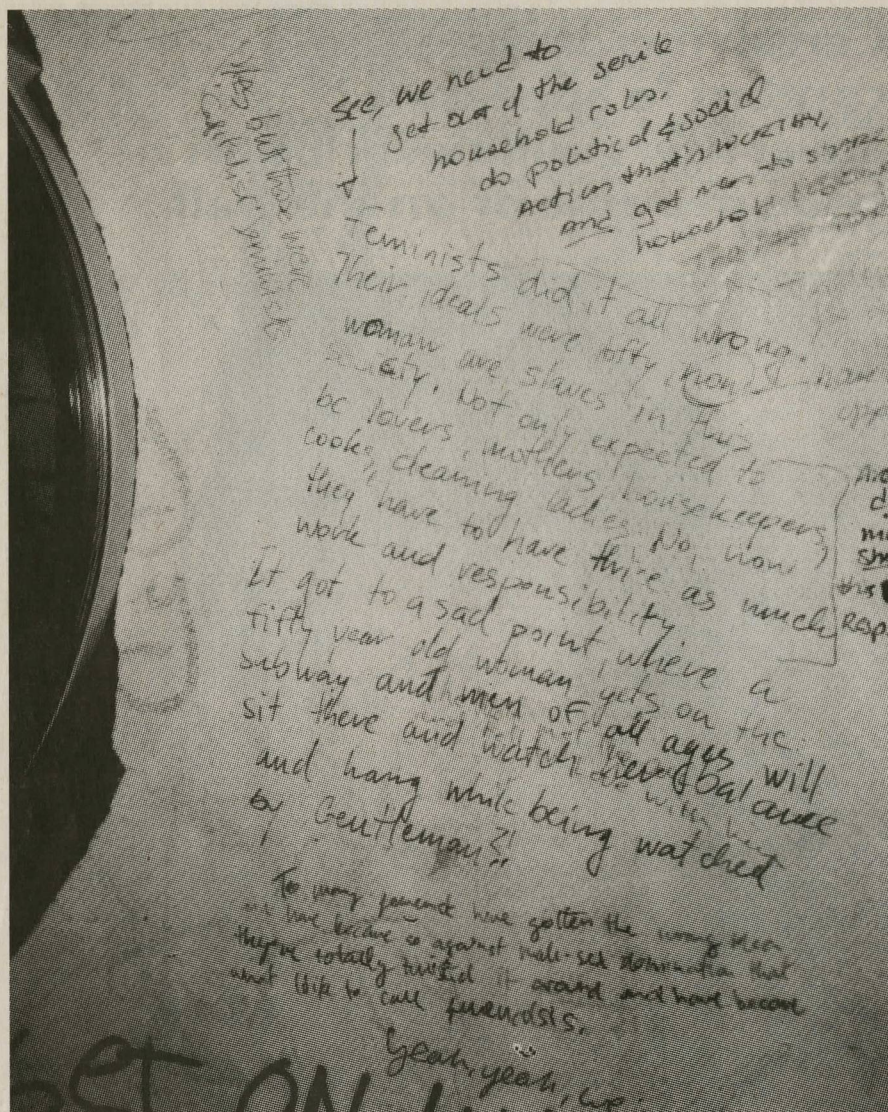 Yes but those were
capitalist feminists
See, we need to
get out of the servile
household roles,
do political & social
Action that's WORTHY,
and get men to share
household
Feminists did it all wrong.
Their ideals were lofty, now
woman are slaves in this
society. Not only expected to
be lovers, mothers, housekeepers,
cooks, cleaning ladies. No, now
they have to have thrice as much
work and responsibility
It got to a sad point, where a
fifty year old woman gets on the
subway and men of all ages will
sit there and watch her balance
and hang while being watched
by Gentleman?!
this
resp
Too many have gotten the wrong idea
and have become so against male-sex domination that
they've totally twisted it around and have become
what I like to call
Yeah, yeah,
ON